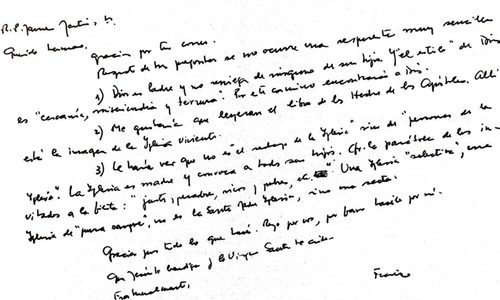 R.P. James Martin, sj.
Querido hermano,
gracias por tu correo.
Respecto de tus preguntas se me ocurre una respuesta muy sencilla
1) Dios es Padre y no reniega de ninguno de sus hijos. Y "el estilo" de Dios
es "cercanía, misericordia y ternura". Por este camino encontrarás a Dios.
2) Me gustaría que leyeran el libro de los Hechos de los Apóstoles. Allí
está la imagen de la Iglesia viviente.
3) Le haría ver que no es "el rechazo de la Iglesia" sino de "personas de la
Iglesia". La Iglesia es madre y convoca a todos sus hijos. Cfr. la parábola de los in-
vitados a la fiesta: "justos, pecadores, ricos y pobres, etc." Una Iglesia "selectiva", una
Iglesia de "pura sangre", no es la Santa Madre Iglesia, sino una secta.
Gracias por todo lo que hacés. Rezo por vos, por favor hacelo por mí.
Que Jesús te bendiga y la Virgen Santa te cuide.
Fraternalmente,
Francisco